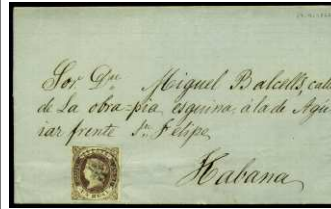 Sor Dn Miguel Balcells, calle
de La obra=pia esquina, á la de Agu
iar frente Sn Felipe
Habana